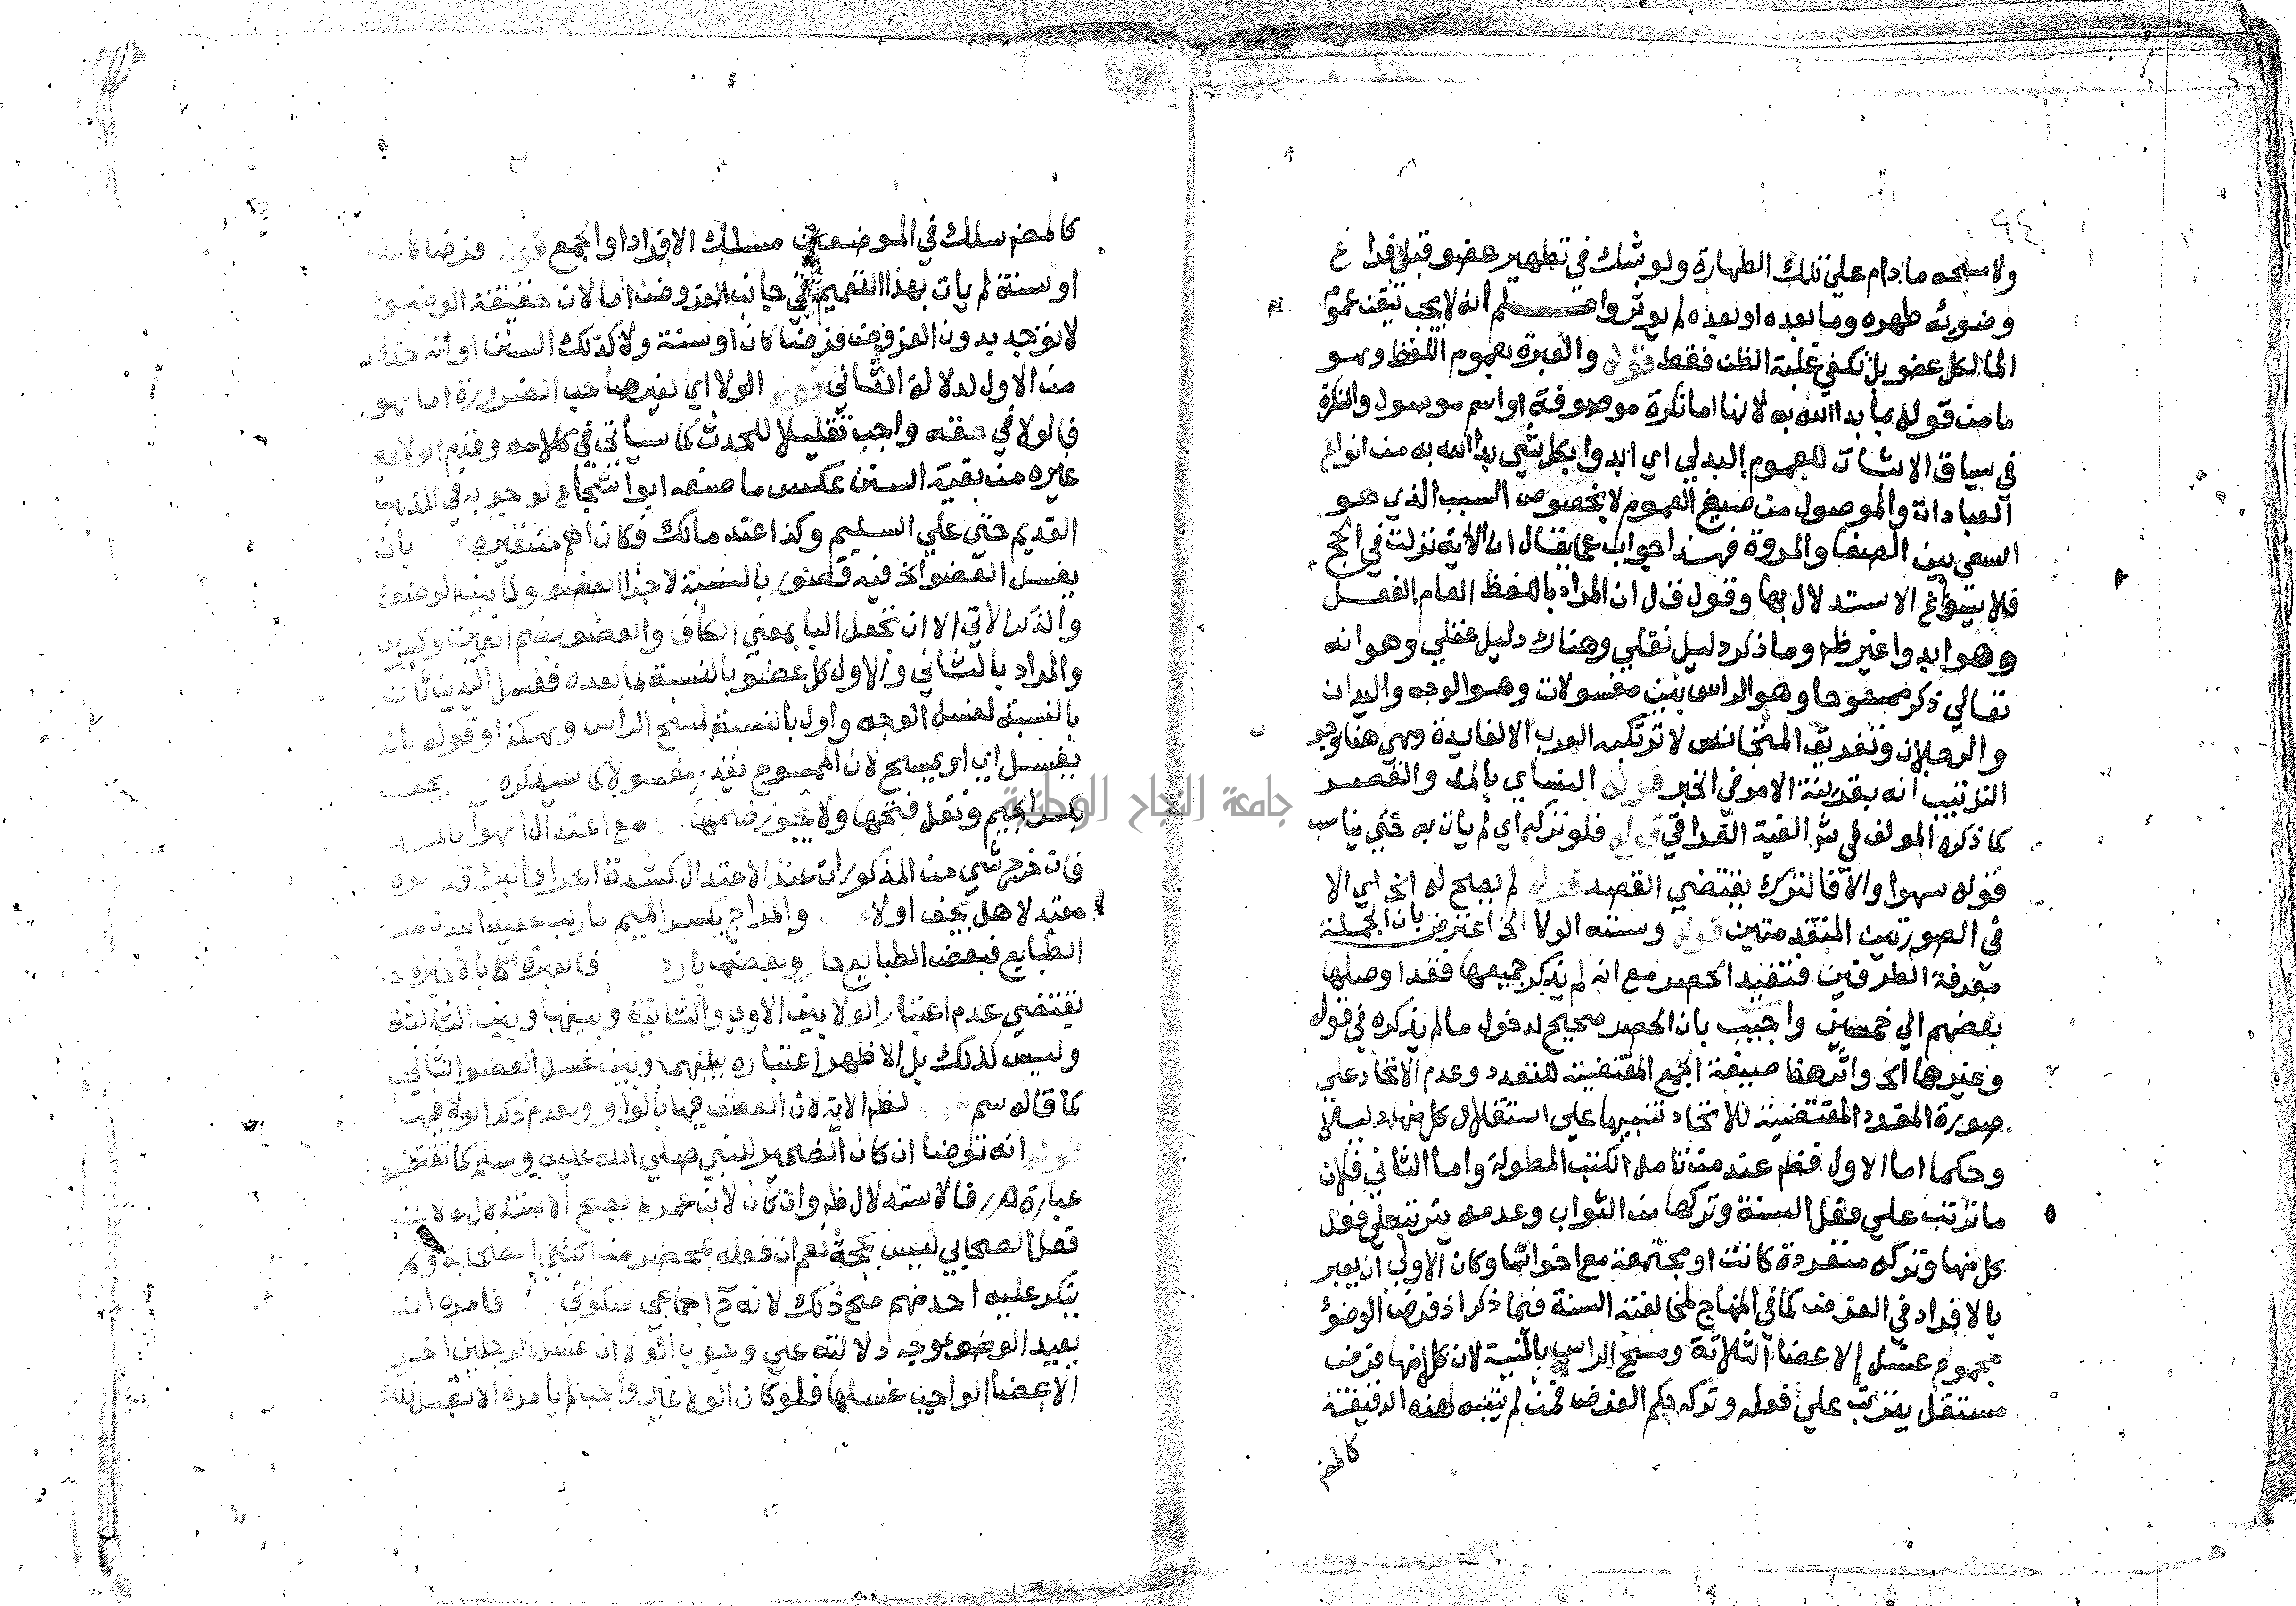 ولا مسحه ما دام علي تلك الطهارة ولو شك في تطهير عضو قبل فراغ
وضوئه طهره وما بعده او بعده لم يوثر واعلم انه لا يجب تيقن عموم
الما لكل عضو بل تكفي غلبة الظن فقط قوله والعبرة بعموم اللفظ وهو
ما من قوله بما بدا الله به لانها اما نكرة موصوفة او اسم موصول والنكرة
في سياق الاثبات للعموم البدلي اي ابدوا بكل شي بدا الله به من انواع
العبادات والموصول من صيغ العموم لا بخصوص السبب الذي هو
السعي بين الصفا والمروة فهذا جواب عما يقال ان الاية نزلت في الحج
فلا يسوغ الاستدلال بها وقول ق ل ان المراد باللفظ العام الفعل
وهو ابدوا غير ظ وما ذكر دليل نقلي وهناك دليل عقلي وهو انه
تعالي ذكر ممسوحا وهو الراس بين مغسولات وهو الوجه واليدان
والرجلان وتفريق المتجانس لا ترتكبه العرب الا لفايدة وهي هنا وجوب
الترتيب انه بقرينة الامر في الخبر قوله النساي بالمد والقصر
كما ذكره المولف في ش الفية العراقي قوله فلو تركه اي لم يات به حتي يناسب
قوله سهوا والا فالترك يقتضي القصد قوله لم يصح له الخ اي الا
في الصورتين المتقدمتين قوله وسننه الولا الخ اعترض بان الجملة
معرفة الطرفين فتفيد الحصر مع انه لم يذكر جميعها فقد اوصلها
بعضهم الي خمسين واجيب بان الحصر صحيح لدخول ما لم يذكره في قوله
وغيرها الخ واثر هنا صيغة الجمع المقتضية للتعدد وعدم الاتحاد علي
صورة المفرد المقتضية للاتحاد تنبيها علي استقلال كل منها دليلا
وحكما اما الاول فظ عند من تامل الكتب المطولة واما الثاني فلان
ما ترتب علي فعل السنة وتركها من الثواب وعدمه يترتب علي فعل
كل منها وتركه منفردة كانت او مجتمعة مع اخواتها وكان الاولي ان يعبر
بالافراد في الفرض كما في المنهاج لمخالفته السنة فيما ذكر اذ فرض الوضوء
مجموع غسل الاعضا الثلاثة ومسح الراس بالنية لان كلا منها فرض
مستقل يترتب علي فعله وتركه حكم الفرض فمن لم يتنبه لهذه الدقيقة
كالمض
كالمض سلك في الموضعين مسلك الافراد او الجمع قوله فرضا كانت
او سنة لم يات بهذا التعميم في جانب الفروض اما لان حقيقة الوضوء
لا توجد بدون الفروض فرضا كان او سنة ولا كذلك السنن او انه حذف
من الاول لدلالة الثاني قوله الولا اي لغير صاحب الضرورة اما هو
فالولا في حقه واجب تقليلا للحدث كما سياتي في كلامه وقدم الولا عن
غيره من بقية السنن عكس ما صنعه ابوا شجاع لوجوبه في المذهب
القديم حتي علي السليم وكذا عند مالك فكان اهم من غيره بان
يغسل العضو الخ فيه قصور بالنسبة لاجزا العضو ولما بين الوضوء
والذكر الاتي الا ان تجعل البا بمعني الكاف والعضو بضم العين وكسرها
والمراد بالثاني والاول كل عضو بالنسبة لما بعده فغسل اليدين ثان
بالنسبة لغسل الوجه واول بالنسبة لمسح الراس وهكذا وقوله بان
يغسل اي او يمسح لان الممسوح يقدر مغسولا كما سيذكره يجف
بكسر الجيم ونقل فتحها ولا يجوز ضمها مع اعتدال الهوا بالمد
فان خرج شي من المذكورات عند الاعتدال كشدة الحر او البرد قدر
معتدلا هل يجف اولا والمزاج بكسر الميم ما ركب عليه البدن من
الطبايع فبعض الطبايع حار وبعضها بارد فالعبرة الخ بالاخيرة
يقتضي عدم اعتبار الولا بين الاولي والثانية وبينها وبين الثالثة
وليس كذلك بل الاظهر اعتباره بينهما وبين غسل العضو الثاني
كما قاله سم لظ الاية لان العطف فيها بالواو ولعدم ذكر الولا فيها
قوله انه توضا ان كان الضمير للنبي صلي الله عليه وسلم كما تقتضيه
عبارة م ر فالاستدلال ظ وان كان لابن عمر لم يصح الاستدلال به لان
فعل الصحابي ليس بحجة نعم ان فعله بحضرة من الصحابة ولم
ينكر عليه احد منهم صح ذلك لانه ح اجماعي سكوتي فامره ان
يعيد الوضوء وجه دلالته علي وجوب الولا ان غسل الرجلين اخر
الاعضا الواجب غسلها فلو كان الولا غير واجب لم يامره الا بغسل تلك
جامعة النجاح الوطنية